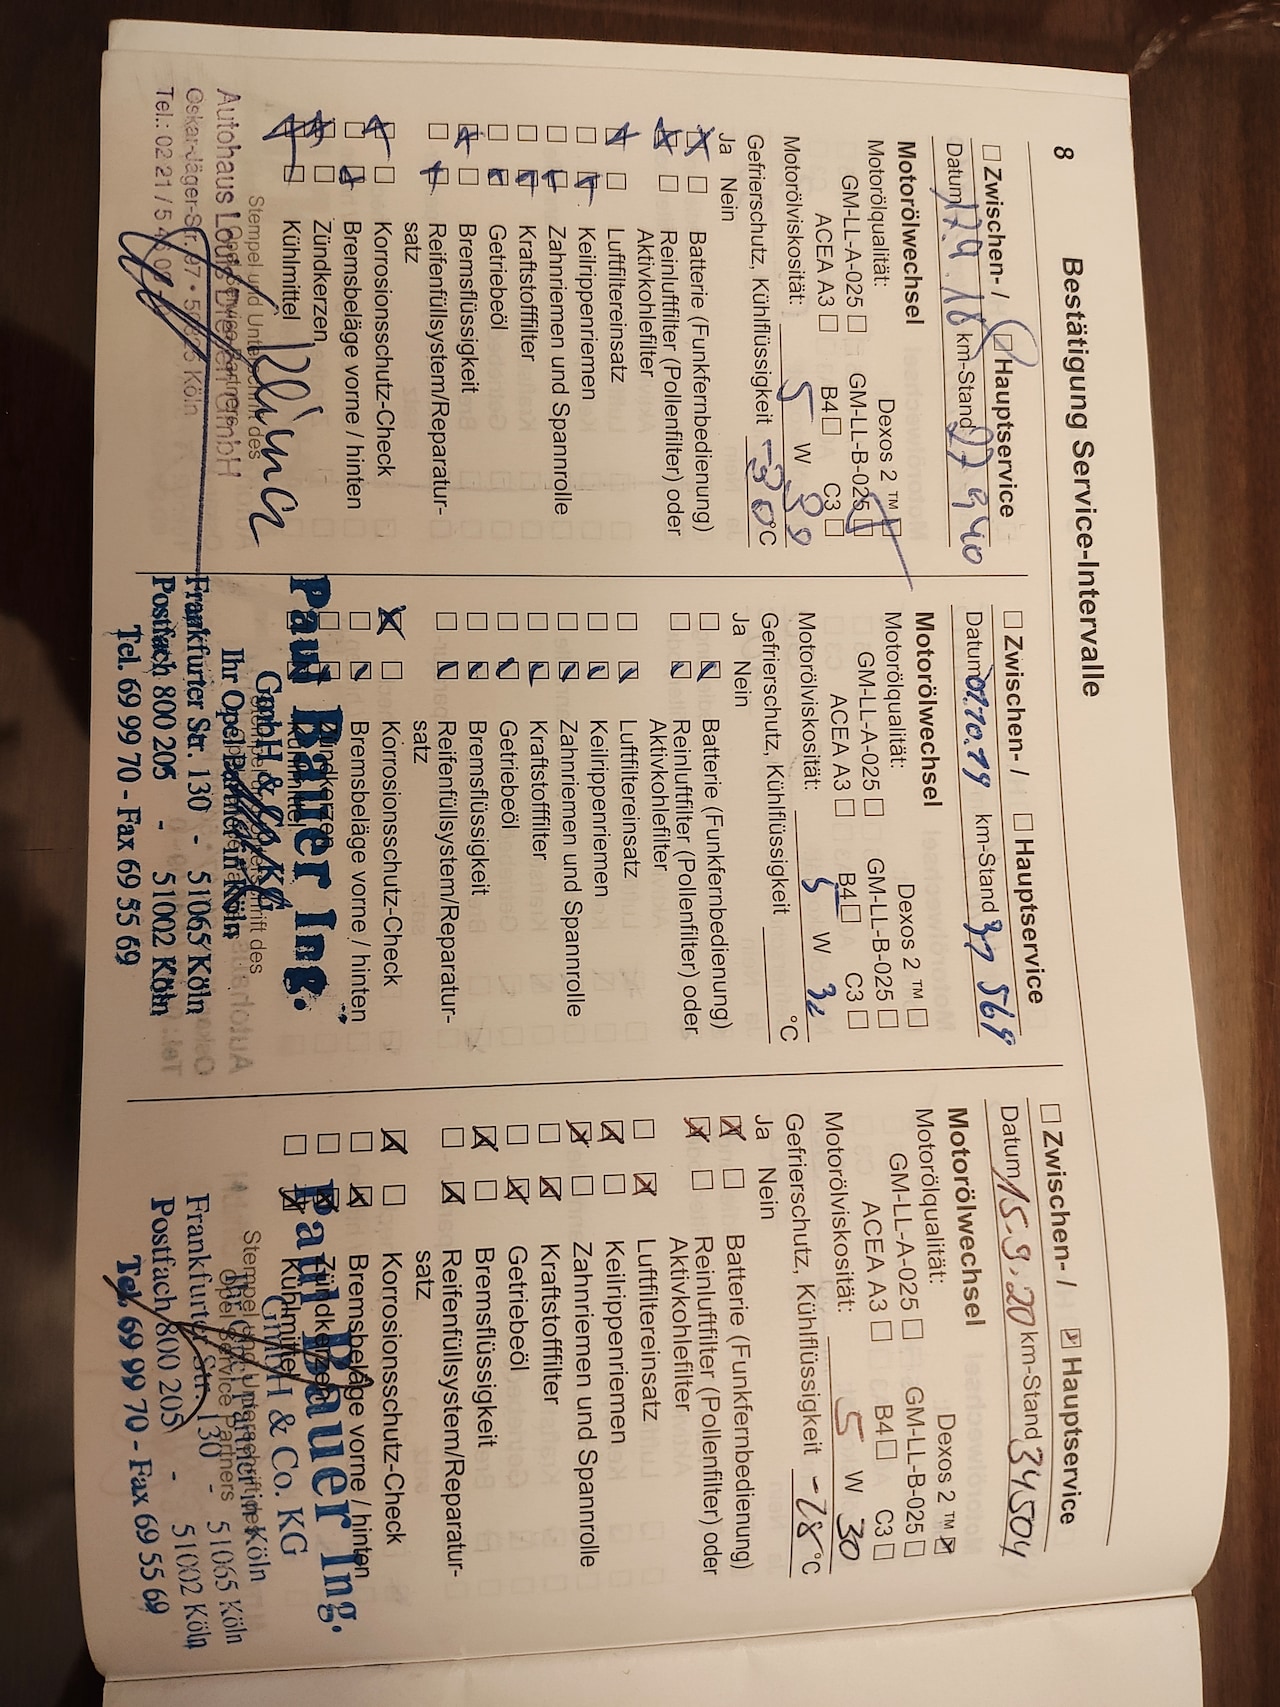 8
Bestätigung Service-Intervalle
☐ Zwischen- / ☐ Hauptservice
Datum 17.9.18 km-Stand 27 940
Motorölwechsel
Motorölqualität: Dexos 2 ™ ☐
GM-LL-A-025 ☐ GM-LL-B-025 ☐
ACEA A3 ☐ B4 ☐ C3 ☐
Motorölviskosität: 5 W 30
Gefrierschutz, Kühlflüssigkeit -30 °C
Ja Nein
☒ ☐ Batterie (Funkfernbedienung)
☒ ☐ Reinluftfilter (Pollenfilter) oder
Aktivkohlefilter
☒ ☐ Luftfiltereinsatz
☐ ☒ Keilrippenriemen
☐ ☒ Zahnriemen und Spannrolle
☐ ☒ Kraftstofffilter
☐ ☒ Getriebeöl
☒ ☐ Bremsflüssigkeit
☐ ☒ Reifenfüllsystem/Reparatur-
satz
☒ ☐ Korrosionsschutz-Check
☐ ☒ Bremsbeläge vorne / hinten
☒ ☐ Zündkerzen
Kühlmittel Klima
Stempel und Unterschrift des
Opel Service Partners
Autohaus GmbH
Oskar-Jäger-Str. 97 • Köln
Tel.: 02 21 / 5
☐ Zwischen- / ☐ Hauptservice
Datum 01.10.19 km-Stand 37 569
Motorölwechsel
Motorölqualität: Dexos 2 ™ ☐
GM-LL-A-025 ☐ GM-LL-B-025 ☐
ACEA A3 ☐ B4 ☐ C3 ☐
Motorölviskosität: 5 W 30
Gefrierschutz, Kühlflüssigkeit °C
Ja Nein
☐ ☒ Batterie (Funkfernbedienung)
☐ ☒ Reinluftfilter (Pollenfilter) oder
Aktivkohlefilter
☐ ☒ Luftfiltereinsatz
☐ ☒ Keilrippenriemen
☐ ☒ Zahnriemen und Spannrolle
☐ ☒ Kraftstofffilter
☐ ☒ Getriebeöl
☐ ☒ Bremsflüssigkeit
☐ ☒ Reifenfüllsystem/Reparatur-
satz
☒ ☐ Korrosionsschutz-Check
☐ ☒ Bremsbeläge vorne / hinten
Zündkerzen
Kühlmittel
Paul Bauer Ing.
GmbH & Co. KG
Ihr Opel Partner in Köln
Frankfurter Str. 130 - 51065 Köln
Postfach 800 205 - 51002 Köln
Tel. 69 99 70 - Fax 69 55 69
☐ Zwischen- / ☒ Hauptservice
Datum 15.9.20 km-Stand 34504
Motorölwechsel
Motorölqualität: Dexos 2 ™ ☒
GM-LL-A-025 ☐ GM-LL-B-025 ☐
ACEA A3 ☐ B4 ☐ C3 ☐
Motorölviskosität: 5 W 30
Gefrierschutz, Kühlflüssigkeit -28 °C
Ja Nein
☒ ☐ Batterie (Funkfernbedienung)
☒ ☐ Reinluftfilter (Pollenfilter) oder
Aktivkohlefilter
☐ ☒ Luftfiltereinsatz
☒ ☐ Keilrippenriemen
☒ ☐ Zahnriemen und Spannrolle
☐ ☒ Kraftstofffilter
☐ ☒ Getriebeöl
☒ ☐ Bremsflüssigkeit
☐ ☒ Reifenfüllsystem/Reparatur-
satz
☒ ☐ Korrosionsschutz-Check
☐ ☒ Bremsbeläge vorne / hinten
☐ ☒ Zündkerzen
☐ ☒ Kühlmittel
Stempel und Unterschrift des
Opel Service Partners
Paul Bauer Ing.
GmbH & Co. KG
Ihr Opel Partner in Köln
Frankfurter Str. 130 - 51065 Köln
Postfach 800 205 - 51002 Köln
Tel. 69 99 70 - Fax 69 55 69